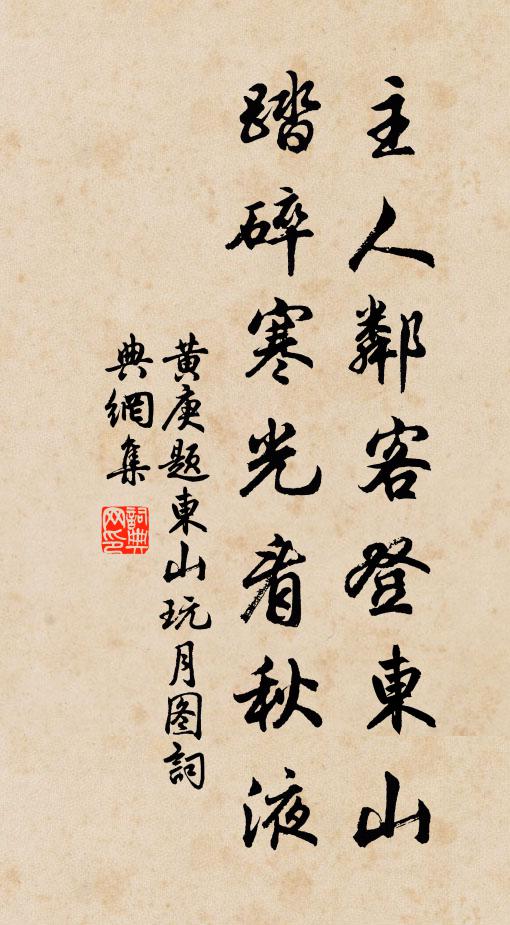 主人鄰客登東山
踏碎寒光看秋液
黄庚题東山玩月图詞
典網集
詞典
网印